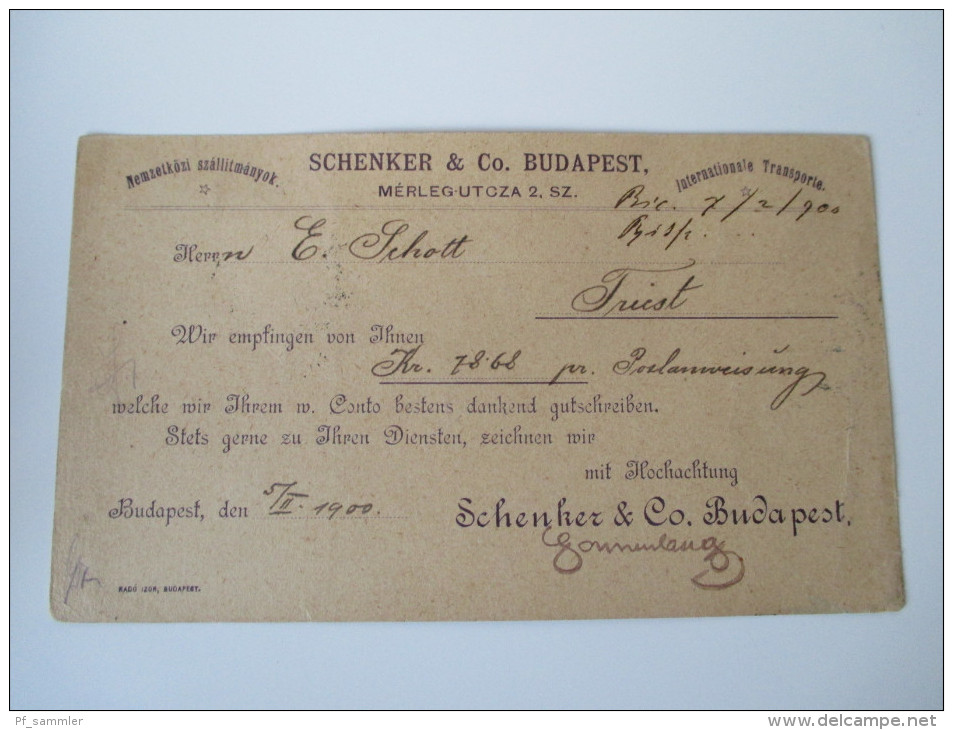 Nemzetközi szállitmányok.
SCHENKER & Co. BUDAPEST,
Internationale Transporte.
MÉRLEG-UTCZA 2, SZ.
Ric. 7/2/900
Herrn E. Schott
Triest
Wir empfingen von Ihnen
Kr. 78·68 pr. Postanweisung
welche wir Ihrem w. Conto bestens dankend gutschreiben.
Stets gerne zu Ihren Diensten, zeichnen wir
mit Hochachtung
Budapest, den 5/II. 1900.
Schenker & Co. Budapest.
RADÓ IZOR, BUDAPEST.
Pf_sammler
www.delcampe.net